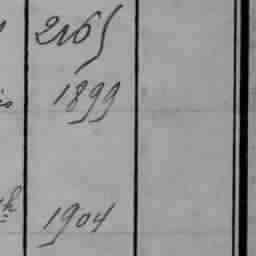 2165
1899
1904